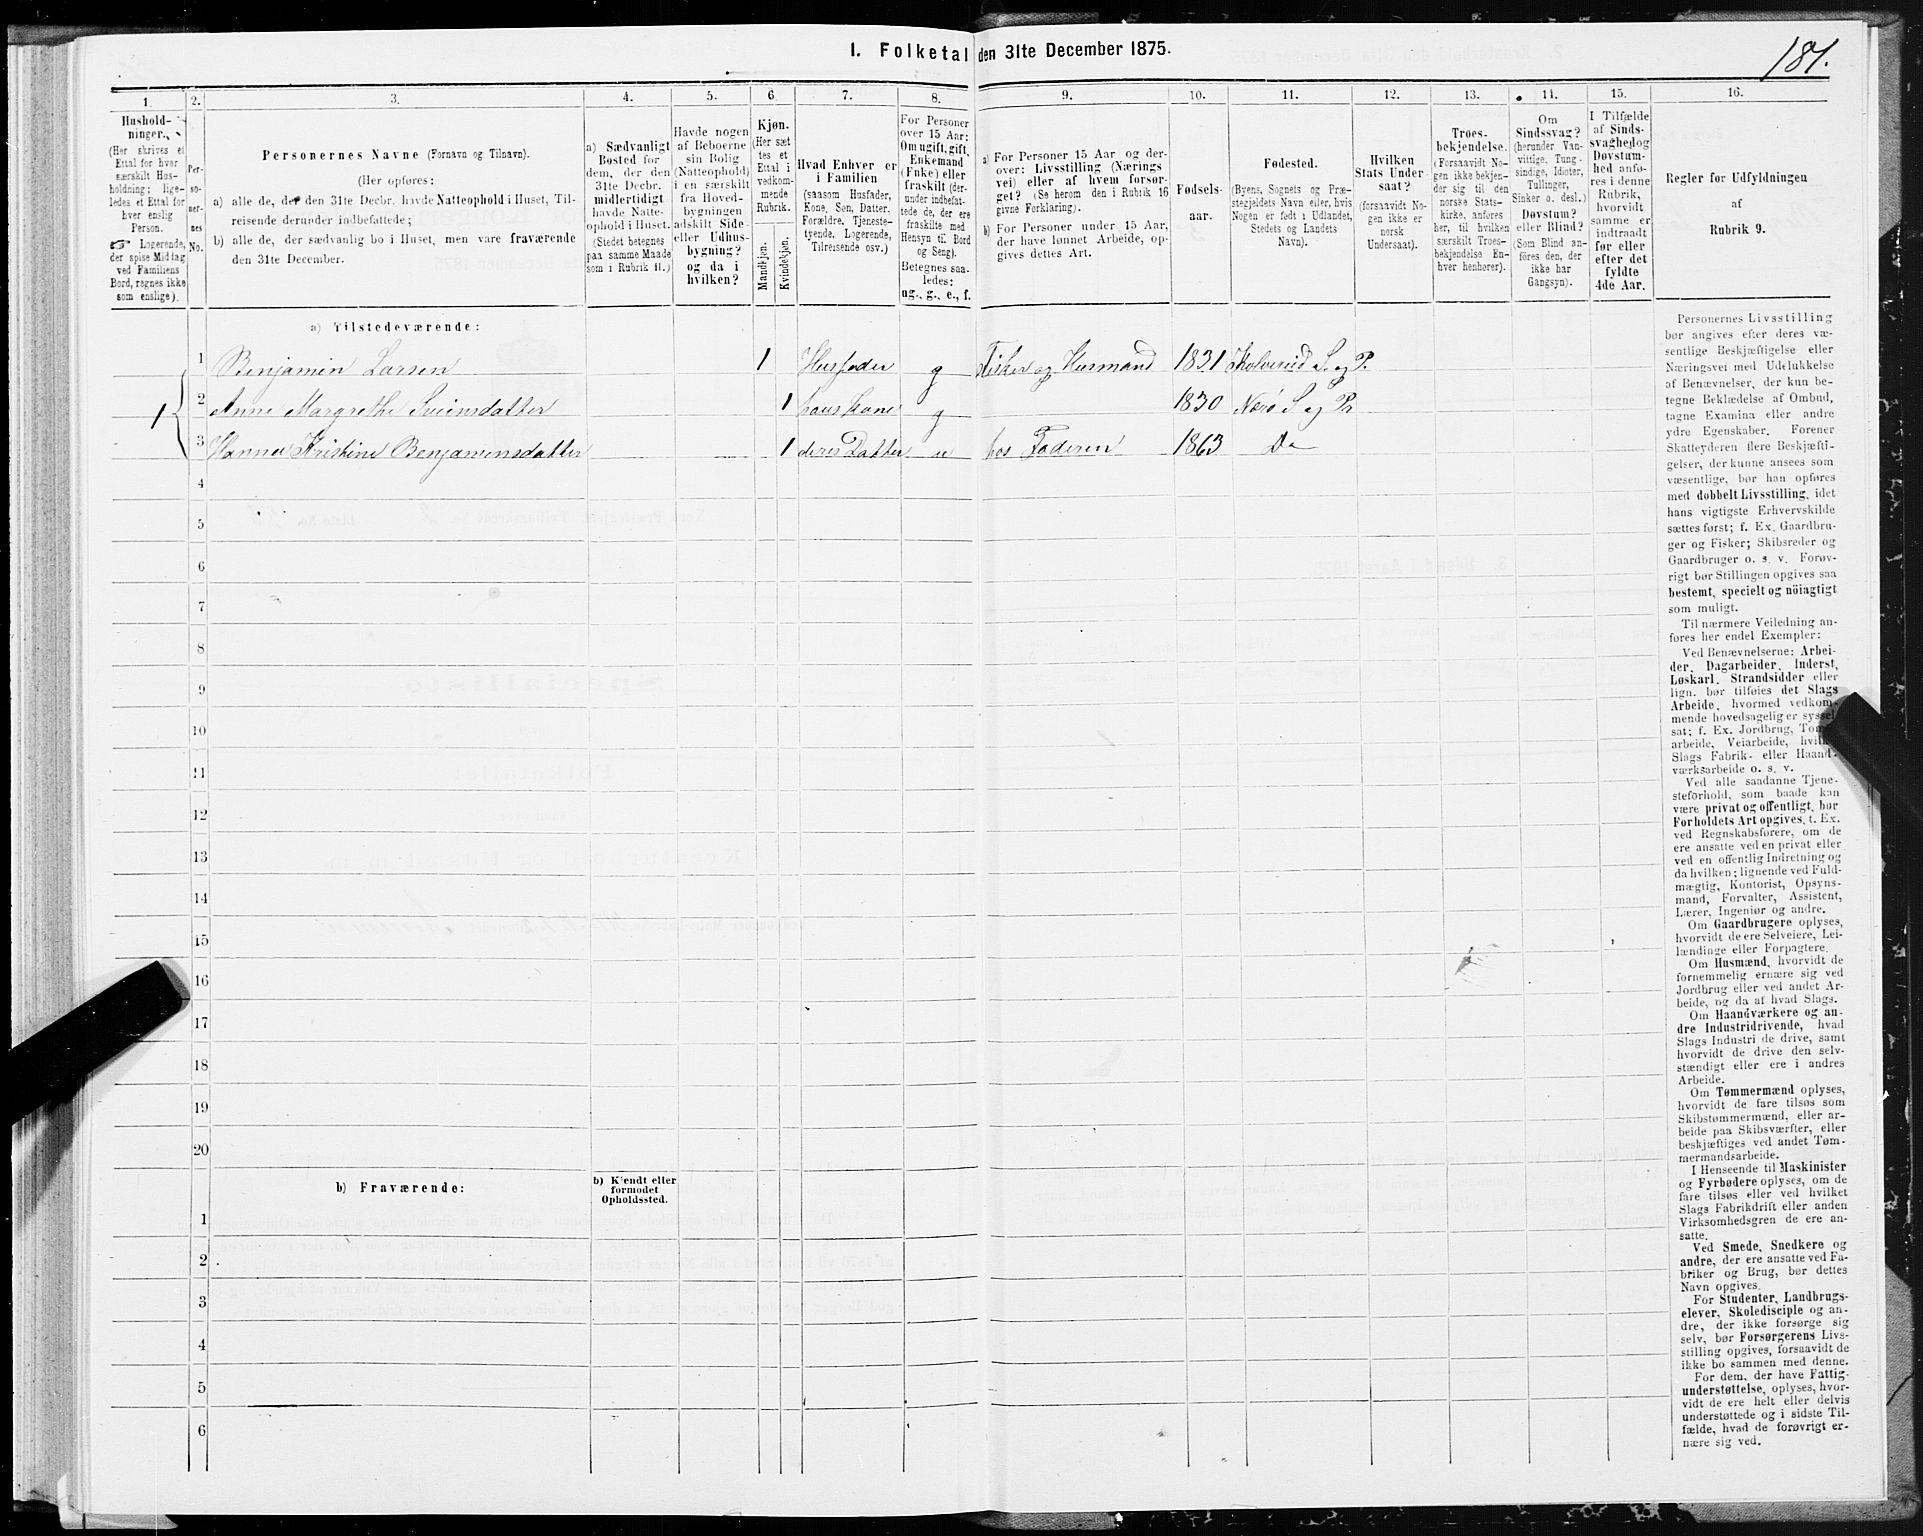 I. Folketal den 31te December 1875.
181.
1. 2. 3. 4. 5. 6. 7. 8. 9. 10. 11. 12. 13. 14. 15. 16.
Hushold-
ninger.
(Her skrives et
Ettal for hver
særskilt Hus-
holdning; lige-
ledes et Ettal for
hver enslig
Person.
☞ Logerende,
der spise Middag
ved Familiens
Bord, regnes ikke
som enslige).
Per-
so-
ner-
nes
No.
Personernes Navne (Fornavn og Tilnavn).
(Her opføres:
a) alle de, der den 31te Decbr. havde Natteophold i Huset, Til-
reisende derunder indbefattede;
b) alle de, der sædvanlig bo i Huset, men vare fraværende
den 31te December.
a) Sædvanligt
Bosted for
dem, der den
31te Decbr.
midlertidigt
havde Natte-
ophold i Huset.
(Stedet betegnes
paa samme Maade
som i Rubrik 11.)
Havde nogen
af Beboerne
sin Bolig
(Natteophold)
i en særskilt
fra Hoved-
bygningen
adskilt Side-
eller Udhus-
bygning?
og da i
hvilken?
Kjøn.
(Her sæt
tes et
Ettal i
vedkom-
mende
Rubrik.
Mandkjøn.
Kvindekjøn.
Hvad Enhver er
i Familien
(saasom Husfader,
Kone, Søn, Datter,
Forældre, Tjeneste-
tyende, Logerende,
Tilreisende osv.)
For Personer
over 15 Aar:
Om ugift, gift,
Enkemand
(Enke) eller
fraskilt (der-
under indbefat-
tede de, der ere
fraskilte med
Hensyn til Bord
og Seng).
Betegnes saa-
ledes:
ug., g., e., f.
a) For Personer 15 Aar og der-
over: Livsstilling (Nærings
vei) eller af hvem forsør-
get? (Se herom den i Rubrik 16
givne Forklaring).
b) For Personer under 15 Aar,
der have lønnet Arbeide, op-
gives dettes Art.
Fødsels-
aar.
Fødested.
(Byens, Sognets og Præ-
stegjeldets Navn eller, hvis
Nogen er født i Udlandet,
Stedets og Landets
Navn).
Hvilken
Stats Under-
saat?
(forsaavidt No-
gen ikke er
norsk
Undersaat).
Troes-
bekjendelse.
(Forsaavidt No-
gen ikke bekjen-
der sig til den
norske Stats-
kirke, anføres
her, til hvilken
særskilt Troes-
bekjendelse En-
hver henhører).
Om
Sindssvag?
(herunder Van-
vittige, Tung-
sindige, Idioter,
Tullinger,
Sinker o. desl.)
Døvstum?
eller Blind?
(Som Blind an-
føres den, der
ikke har
Gangsyn).
I Tilfælde
af Sinds-
svaghed og
Døvstum-
hed anfø-
res i denne
Rubrik,
hvorvidt
samme er
indtraadt
før eller
efter det
fyldte
4de Aar.
Regler for Udfyldningen
af
Rubrik 9.
a) Tilstedeværende:
1 1 Benjamin Larsen 1 Husfader g Fisker og Husmand 1831 Kolvereid S. og P.
2 Anne Margrethe Sveinsdatter 1 hans Kone g 1830 Nærø S og Pr
3 Hanna Kristine Benjaminsdatter 1 deres Datter u hos Faderen 1863 Do
4
5
6
7
8
9
10
11
12
13
14
15
16
17
18
19
20
b) Fraværende:
b) Kjendt eller
formodet
Opholdssted.
1
2
3
4
5
6
Personernes Livsstilling
bør angives efter deres væ-
sentlige Beskjæftigelse eller
Næringsvei med Udelukkelse
af Benævnelser, der kun be-
tegne Beklædelse af Ombud,
tagne Examina eller andre
ydre Egenskaber. Forener
Skatteyderen flere Beskjæfti-
gelser, der kunne ansees som
væsentlige, bør han opføres
med dobbelt Livsstilling, idet
hans vigtigste Erhvervskilde
sættes først; f. Ex. Gaardbru-
ger og Fisker; Skibsreder og
Gaardbruger o. s. v. Forøv-
rigt bør Stillingen opgives saa
bestemt, specielt og nöiagtigt
som muligt.
Til nærmere Veiledning an-
føres her endel Exempler:
Ved Benævnelserne: Arbei-
der, Dagarbeider, Inderst,
Løskarl, Strandsidder eller
lign. bør tilføies det Slags
Arbeide, hvormed vedkom-
mende hovedsagelig er syssel-
sat; f. Ex. Jordbrug,
arbeide, Veiarbeide,
Slags Fabrik- eller Haand-
værksarbeide o. s. v.
Ved alle saadanne Tjene-
steforhold, som baade kan
være privat og offentligt, bør
Forholdets Art opgives, t. Ex.
ved Regnskabsførere, om de
ere ansatte ved en privat eller
ved en offentlig Indretning og
da hvilken; lignende ved Fuld-
mægtig, Kontorist, Opsyns-
mand, Forvalter, Assistent,
Lærer, Ingeniør og andre.
Om Gaardbrugere oplyses,
hvorvidt de ere Selveiere, Lei-
lændinge eller Forpagtere.
Om Husmænd, hvorvidt de
fornemmelig ernære sig ved
Jordbrug eller ved andet Ar-
beide, og da af hvad Slags.
Om Haandværkere og an-
dre Industridrivende, hvad
Slags Industri de drive, samt
hvorvidt de drive den selv-
stændigt eller ere i andres
Arbeide.
Om Tømmermænd oplyses,
hvorvidt de fare tilsøs som
Skibstømmermænd, eller ar-
beide paa Skibsværfter, eller
beskjæftiges ved andet Tøm-
mermandsarbeide.
I Henseende til Maskinister
og Fyrbødere oplyses, om de
fare tilsøs eller ved hvilket
Slags Fabrikdrift eller anden
Virksomhedsgren de ere an-
satte.
Ved Smede, Snedkere og
andre, der ere ansatte ved Fa-
briker og Brug, bør dettes
Navn opgives.
For Studenter, Landbrugs-
elever, Skoledisciple og an-
dre, der ikke forsørge sig
selv, bør Forsørgerens Livs-
stilling opgives, forsaavidt de
ikke bo sammen med denne.
For dem, der have Fattig-
understøttelse, oplyses, hvor-
vidt de ere helt eller delvis
understøttede og i sidste Til-
fælde, hvad de forøvrigt er-
nære sig ved.